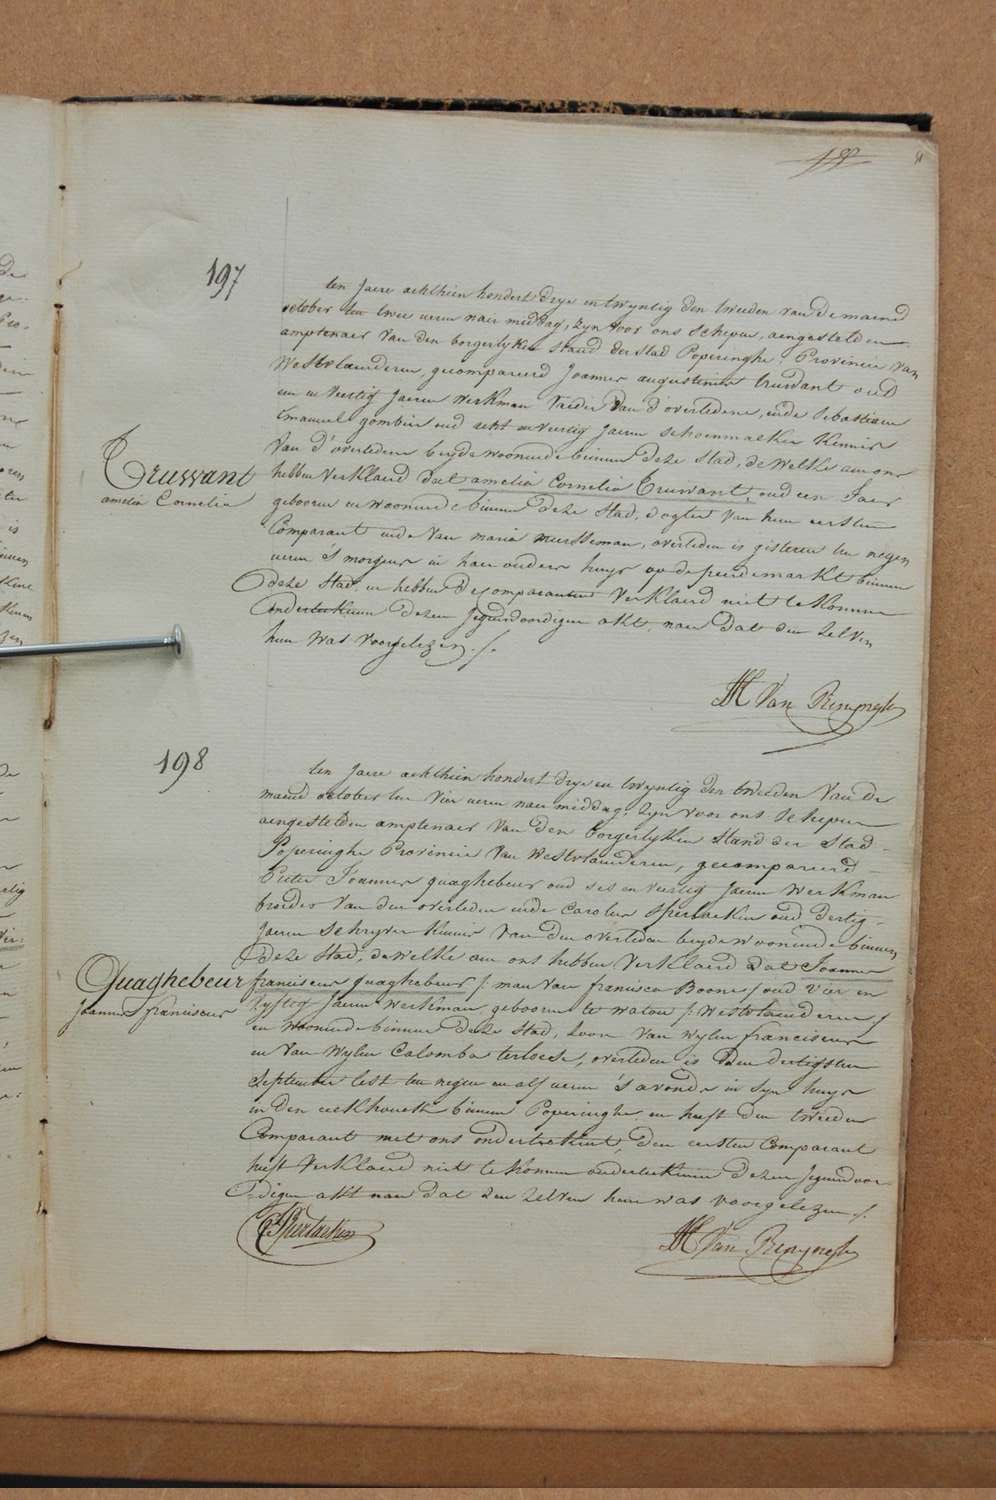 197
ten Jaere achthien hondert drye en twyntig den tweeden van de maend
october ten twee uren naer middag, zyn voor ons schepen, aengestelden
amptenaer van den borgerlyken stand der stad Poperinghe, Provincie van
Westvlaenderen, gecompareerd Joannes augustinus truwant oud
een en veertig Jaeren werkman vaeder van d'overledene, ende sebastiaen
Emanuel gombeir oud acht en veertig Jaeren schoenmaeker kennis
van d'overledene beyde woonende binnen deze stad, de welke aen ons
hebben verklaerd dat amelia Cornelia Truwant, oud een Jaer
Truwant
amelia Cornelia
geboren en woonende binnen deze stad, dogter van hun eersten
Comparant ende van maria meesseman, overleden is gisteren ten negen
uren 's morgens in haer ouders huys op de peerdemarkt binnen
deze stad, en hebben de comparanten verklaerd niet te konnen
onderteekenen dezen tegenwoordigen akt, naer dat den zelven
hun was voorgelezen ./.
Van Renynghe
198
ten Jaere achthien hondert drye en twyntig den tweeden van de
maend october ten vier uren naer middag, zyn voor ons schepen
aengestelden amptenaer van den borgerlyken stand der stad
Poperinghe Provincie van Westvlaenderen, gecompareerd
Pieter Joannes quaghebeur oud ses en veertig Jaeren werkman
broeder van den overleden ende Carolus Sperlaeken oud dertig
Jaeren schryver kennis van den overleden beyde woonende binnen
deze stad, de welke aen ons hebben verklaerd dat Joannes
Quaghebeur
Joannes franciscus
franciscus quaghebeur /: man van francisca Boone / oud vier en
vyftig Jaeren werkman geboren te watou /: Westvlaenderen /
en woonende binnen deze stad, zoon van wylen franciscus
en van wylen Colomba terlosse, overleden is den dertigsten
september lest ten negen en alf uren 's avonds in syn huys
in den eekhouck binnen Poperinghe, en heeft den tweeden
Comparant met ons onderteekent, den eersten Comparant
heeft verklaerd niet te konnen onderteekenen dezen tegenwoor-
digen akt naer dat den zelven hun was voorgelezen ./.
Sperlaeken
Van Renynghe